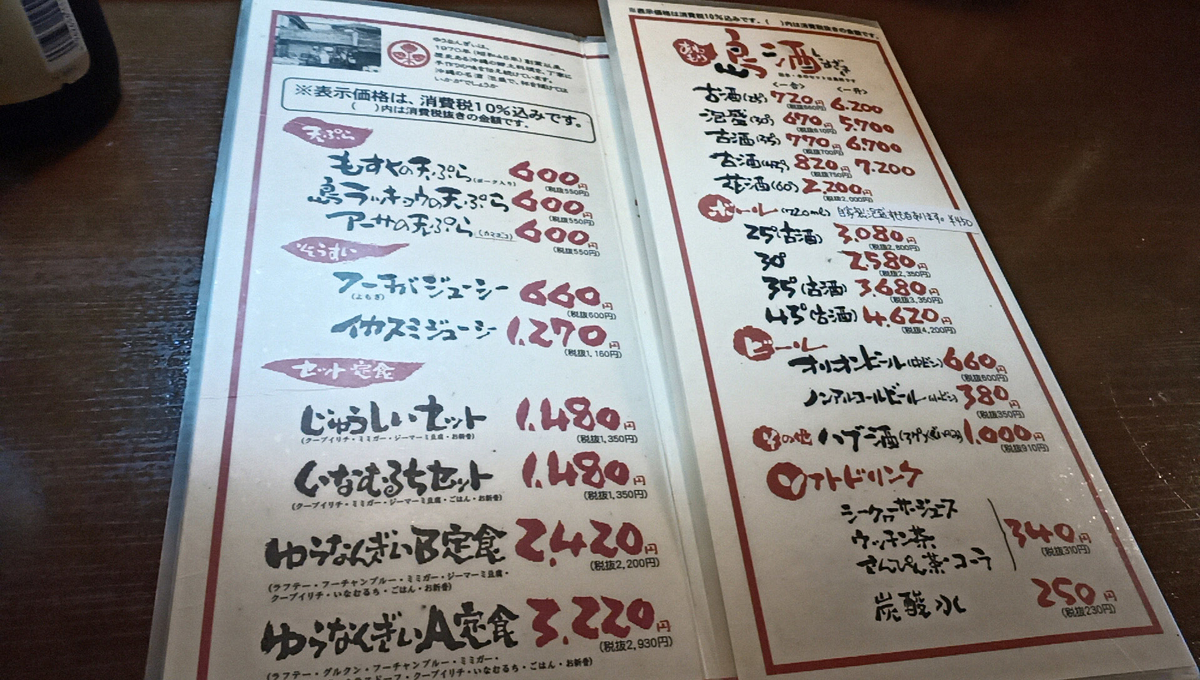 ゆうなんぎいは、
1970年(昭和45年)創業以来、
歴史ある沖縄の郷土料理を、丁寧に
手作りの味を伝え続けています。
沖縄の名酒 泡盛で、杯を傾けては
いかがでしょうか
※表示価格は、消費税10%込みです。
( )内は消費税抜きの金額です。
天ぷら
もずくの天ぷら(ポーク入り) 600円
(税抜550円)
島ラッキョウの天ぷら 600円
(税抜550円)
アーサの天ぷら(カマボコ) 600円
(税抜550円)
ぞうすい
フーチバジューシー 660円
(よもぎ) (税抜600円)
イカスミジューシー 1,270円
(税抜1,160円)
セット定食
じゅうしいセット 1,480円
(クーブイリチ・ミミガー・ジーマーミ豆腐・お新香) (税抜1,350円)
いなむるちセット 1,480円
(クーブイリチ・ミミガー・ジーマーミ豆腐・ごはん・お新香) (税抜1,350円)
ゆうなんぎいB定食 2,420円
(税抜2,200円)
(ラフテー・フーチャンプルー・ミミガー・ジーマーミ豆腐・
クーブイリチ・いなむるち・ごはん・お新香)
ゆうなんぎいA定食 3,220円
(税抜2,930円)
(ラフテー・グルクン・フーチャンプルー・ミミガー・
クーブイリチ・いなむるち・ごはん・お新香)
※表示価格は消費税10%込みです。( )内は消費税抜きの金額です。
あわもり 島酒 しまざき
<一合> <一升>
古酒(25°) 720円 6.200
(税抜660円)
泡盛(30°) 670円 5.700
(税抜610円)
古酒(35°) 770円 6.700
(税抜700円)
古酒(43°) 820円 7.200
(税抜750円)
花酒(60°) 2,200円
(税抜2,000円)
ボール(720ml)
25°(古酒) 3,080円
(税抜2,800円)
30° 2580円
(税抜2,350円)
35°(古酒) 3,680円
(税抜3,350円)
43°(古酒) 4,620円
(税抜4,200円)
ビール
オリオンビール(中ビン) 660円
(税抜600円)
ノンアルコールビール(小ビン) 380円
(税抜350円)
その他 ハブ酒 1,000円
(税抜910円)
ソフトドリンク
シークヮーサージュース
ウッチン茶
さんぴん茶・コーラ
340円
(税抜310円)
炭酸水 250円
(税抜230円)